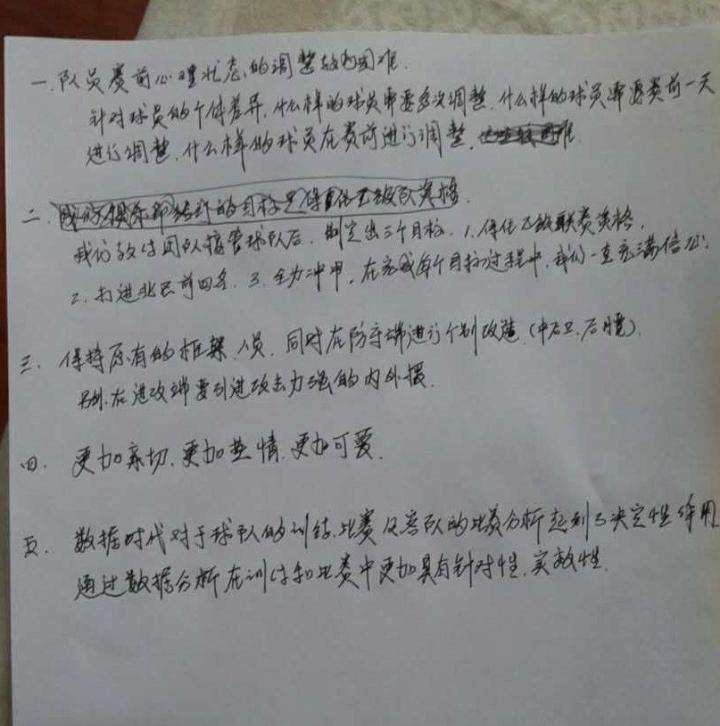 一.队员赛前心理状态的调整较为困难.
针对球员的个体差异,什么样的球员需要多次调整.什么样的球员需要赛前一天
进行调整.什么样的球员在赛前进行调整.
二.我们 的目标是保住乙级队资格.
我们教练团队接管球队后,制定出三个目标.1.保住乙级联赛资格.
2.打进北区前四名.3.全力冲甲.在完成每个目标过程中,我们一直充满信心.
三.保持原有的框架人员.同时在防守端进行个别改造.(中后卫.后腰).
另外.在进攻端要引进攻击力强的内外援.
四.更加亲切.更加热情.更加可爱.
五.数据时代对于球队的训练.比赛及客队的比赛分析起到了决定性作用
通过数据分析在训练和比赛中更加具有针对性.实效性.